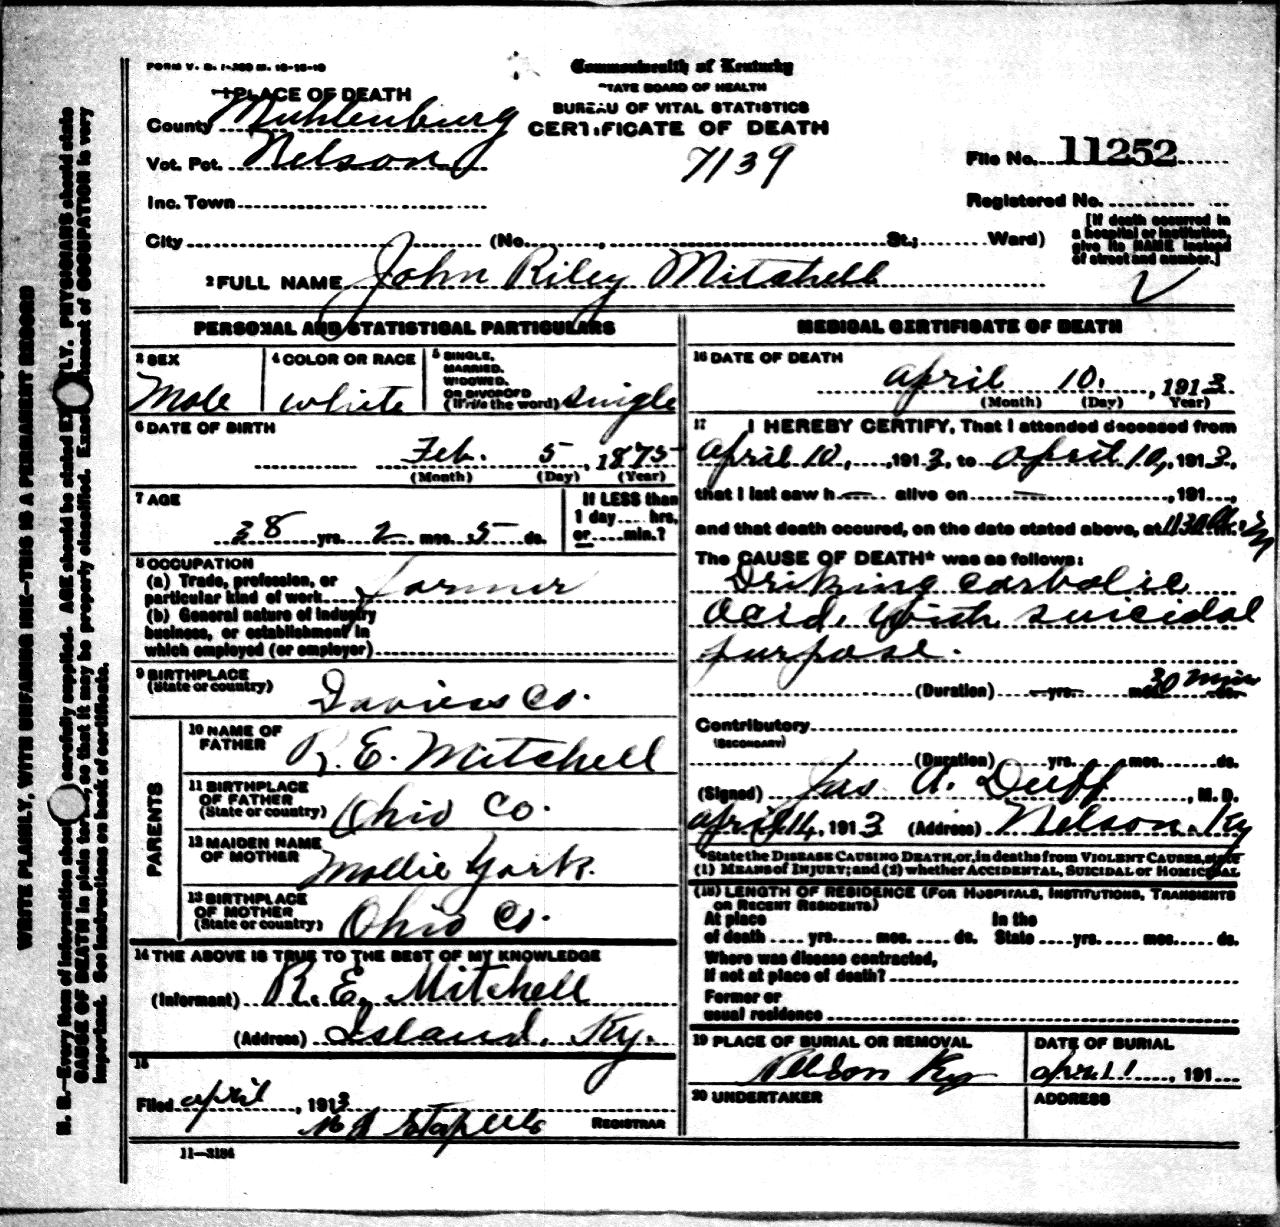 FORM V. S. 1-350 M. 10-16-10
Commonwealth of Kentucky
STATE BOARD OF HEALTH
BUREAU OF VITAL STATISTICS
CERTIFICATE OF DEATH
7139
1 PLACE OF DEATH
County Muhlenburg
Vot. Pct. Nelson
Inc. Town
City (No. , St.; Ward)
File No. 11252
Registered No.
[If death occurred in
a hospital or institution,
give its NAME instead
of street and number.]
2 FULL NAME John Riley Mitchell
PERSONAL AND STATISTICAL PARTICULARS
3 SEX
Male
4 COLOR OR RACE
White
5 SINGLE,
MARRIED,
WIDOWED,
OR DIVORCED
(Write the word) Single
6 DATE OF BIRTH
Feb. 5, 1875
(Month) (Day) (Year)
7 AGE
38 yrs. 2 mos. 5 ds.
If LESS than
1 day .... hrs.
or .... min.?
8 OCCUPATION
(a) Trade, profession, or
particular kind of work farmer
(b) General nature of industry
business, or establishment in
which employed (or employer)
9 BIRTHPLACE
(State or country)
Daviess Co.
PARENTS
10 NAME OF
FATHER
R. E. Mitchell
11 BIRTHPLACE
OF FATHER
(State or country)
Ohio Co.
12 MAIDEN NAME
OF MOTHER
Mollie York.
13 BIRTHPLACE
OF MOTHER
(State or country)
Ohio Co.
14 THE ABOVE IS TRUE TO THE BEST OF MY KNOWLEDGE
(Informant) R. E. Mitchell
(Address) Island, Ky.
15
Filed april, 1913
REGISTRAR
11-3184
MEDICAL CERTIFICATE OF DEATH
16 DATE OF DEATH
april 10, 1913
(Month) (Day) (Year)
17 I HEREBY CERTIFY, That I attended deceased from
april 10, 1913, to april 10, 1913,
that I last saw h— alive on — , 191...,
and that death occured, on the date stated above, at 1130
The CAUSE OF DEATH* was as follows:
Drinking carbolic
acid, with suicidal
purpose.
(Duration) yrs. mos. 30 min ds.
Contributory
(SECONDARY)
(Duration) yrs. mos. ds.
(Signed) Jas A. Duff, M. D.
april 14, 1913 (Address) Nelson, Ky
*State the DISEASE CAUSING DEATH, or, in deaths from VIOLENT CAUSES, state
(1) MEANS of INJURY; and (2) whether ACCIDENTAL, SUICIDAL or HOMICIDAL
(18) LENGTH OF RESIDENCE (FOR HOSPITALS, INSTITUTIONS, TRANSIENTS
OR RECENT RESIDENTS)
At place In the
of death .... yrs. .... mos. .... ds. State .... yrs. .... mos. .... ds.
Where was disease contracted,
if not at place of death?
Former or
usual residence
19 PLACE OF BURIAL OR REMOVAL
Nelson Ky
DATE OF BURIAL
april 11, 191
20 UNDERTAKER
ADDRESS
WRITE PLAINLY, WITH UNFADING INK—THIS IS A PERMANENT RECORD
N. B.—Every item of information should carefully supplied. AGE should be stated EXACTLY. PHYSICIANS should state
CAUSE OF DEATH in plain terms, so that it may be properly classified. Exact statement of OCCUPATION is very
important. See instructions on back of certificate.